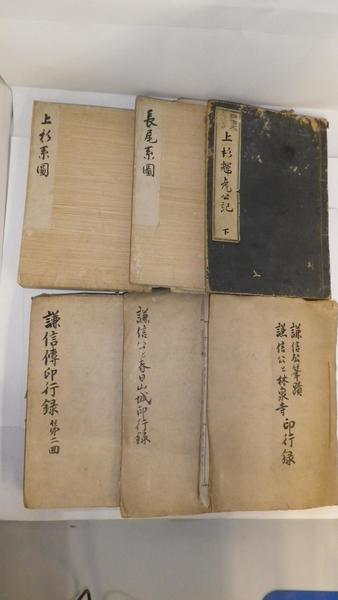 上杉系圖
長尾系圖
上杉輝虎公記 下
謙信傳印行録 第二回
謙信公と春日山城印行録
謙信公筆蹟
謙信公と林泉寺印行録